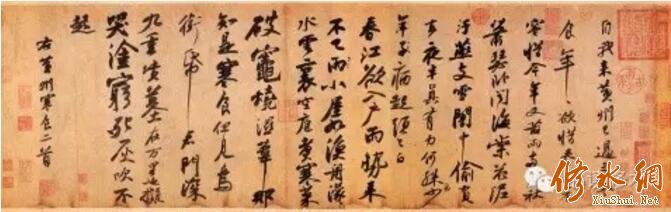 自我來黃州已過三寒
食年〻欲惜春春去不
容惜今年又苦雨兩月秋
蕭瑟卧聞海棠花泥
汙燕支雪闇中偷負
去夜半真有力何殊少
年子病起頭已白
春江欲入戶雨勢來
不已雨小屋如漁舟濛〻
水雲裏空庖煮寒菜
破竈燒濕葦那
知是寒食但見烏
銜帋君門深
九重墳墓在万里也擬
哭塗窮死灰吹不
起
右黃州寒食二首
修水網
XiuShui.Net